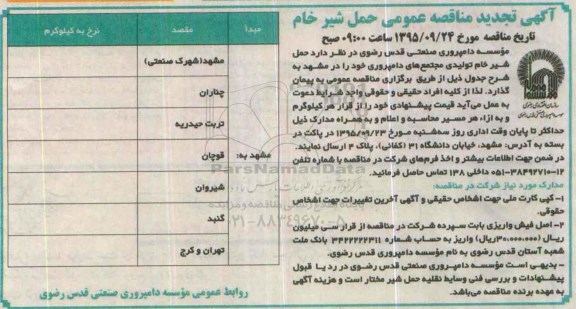 آگهی تجدید مناقصه عمومی حمل شیر خام
تاریخ مناقصه مورخ ۱۳۹۵/۰۹/۲۴ ساعت ۰۹:۰۰ صبح
مؤسسه دامپروری صنعتی قدس رضوی در نظر دارد حمل
شیر خام تولیدی مجتمع‌های دامپروری خود را در مشهد به
شرح جدول ذیل از طریق برگزاری مناقصه عمومی به پیمان
گذارد. لذا از کلیه افراد حقیقی و حقوقی واجد شرایط دعوت
به عمل می‌آید قیمت پیشنهادی خود را از قرار هر کیلوگرم
و به ازاء هر مسیر محاسبه و اعلام و به همراه مدارک ذیل
حداکثر تا پایان وقت اداری روز سه‌شنبه مورخ ۱۳۹۵/۰۹/۲۳ در پاکت در
بسته به آدرس: مشهد، خیابان دانشگاه ۳۱ (کفائی)، پلاک ۴ ارسال نمایند.
در ضمن جهت اطلاعات بیشتر و اخذ فرم‌های شرکت در مناقصه با شماره تلفن
۱۲-۳۸۴۹۲۷۱۰-۰۵۱ داخلی ۱۳۸ تماس حاصل فرمائید.
مدارک مورد نیاز شرکت در مناقصه:
۱- کپی کارت ملی جهت اشخاص حقیقی و آگهی آخرین تغییرات جهت اشخاص
حقوقی.
۲- اصل فیش واریزی بابت سپرده شرکت در مناقصه از قرار سی میلیون
ریال (۳۰،۰۰۰،۰۰۰ریال) واریز به حساب شماره ۳۴۲۲۲۲۲۳۱۱ بانک ملت
شعبه آستان قدس رضوی به نام مؤسسه دامپروری قدس رضوی.
- بدیهی است مؤسسه دامپروری صنعتی قدس رضوی در رد یا قبول
پیشنهادات و بررسی فنی وسایط نقلیه حمل شیر مختار است و هزینه آگهی
به عهده برنده مناقصه می‌باشد.
مبدأ مقصد نرخ به کیلوگرم
مشهد به:
مشهد(شهرک صنعتی)
چناران
تربت حیدریه
قوچان
شیروان
گنبد
تهران و کرج
روابط عمومی مؤسسه دامپروری صنعتی قدس رضوی
ParsNamadData
۰۲۱-۸۸۳۴۹۶۷۰-۵